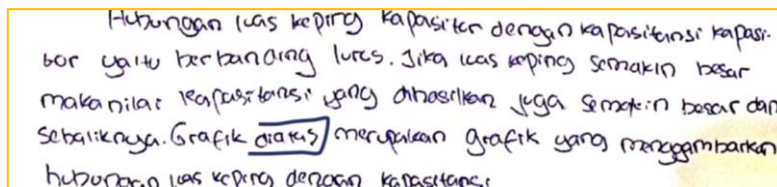 Hubungan luas keping kapasitor dengan kapasitansi kapasi-
tor yaitu berbanding lurus. Jika luas keping semakin besar
maka nilai kapasitansi yang dihasilkan juga semakin besar dan
sebaliknya. Grafik diatas merupakan grafik yang menggambarkan
hubungan luas keping dengan kapasitansi